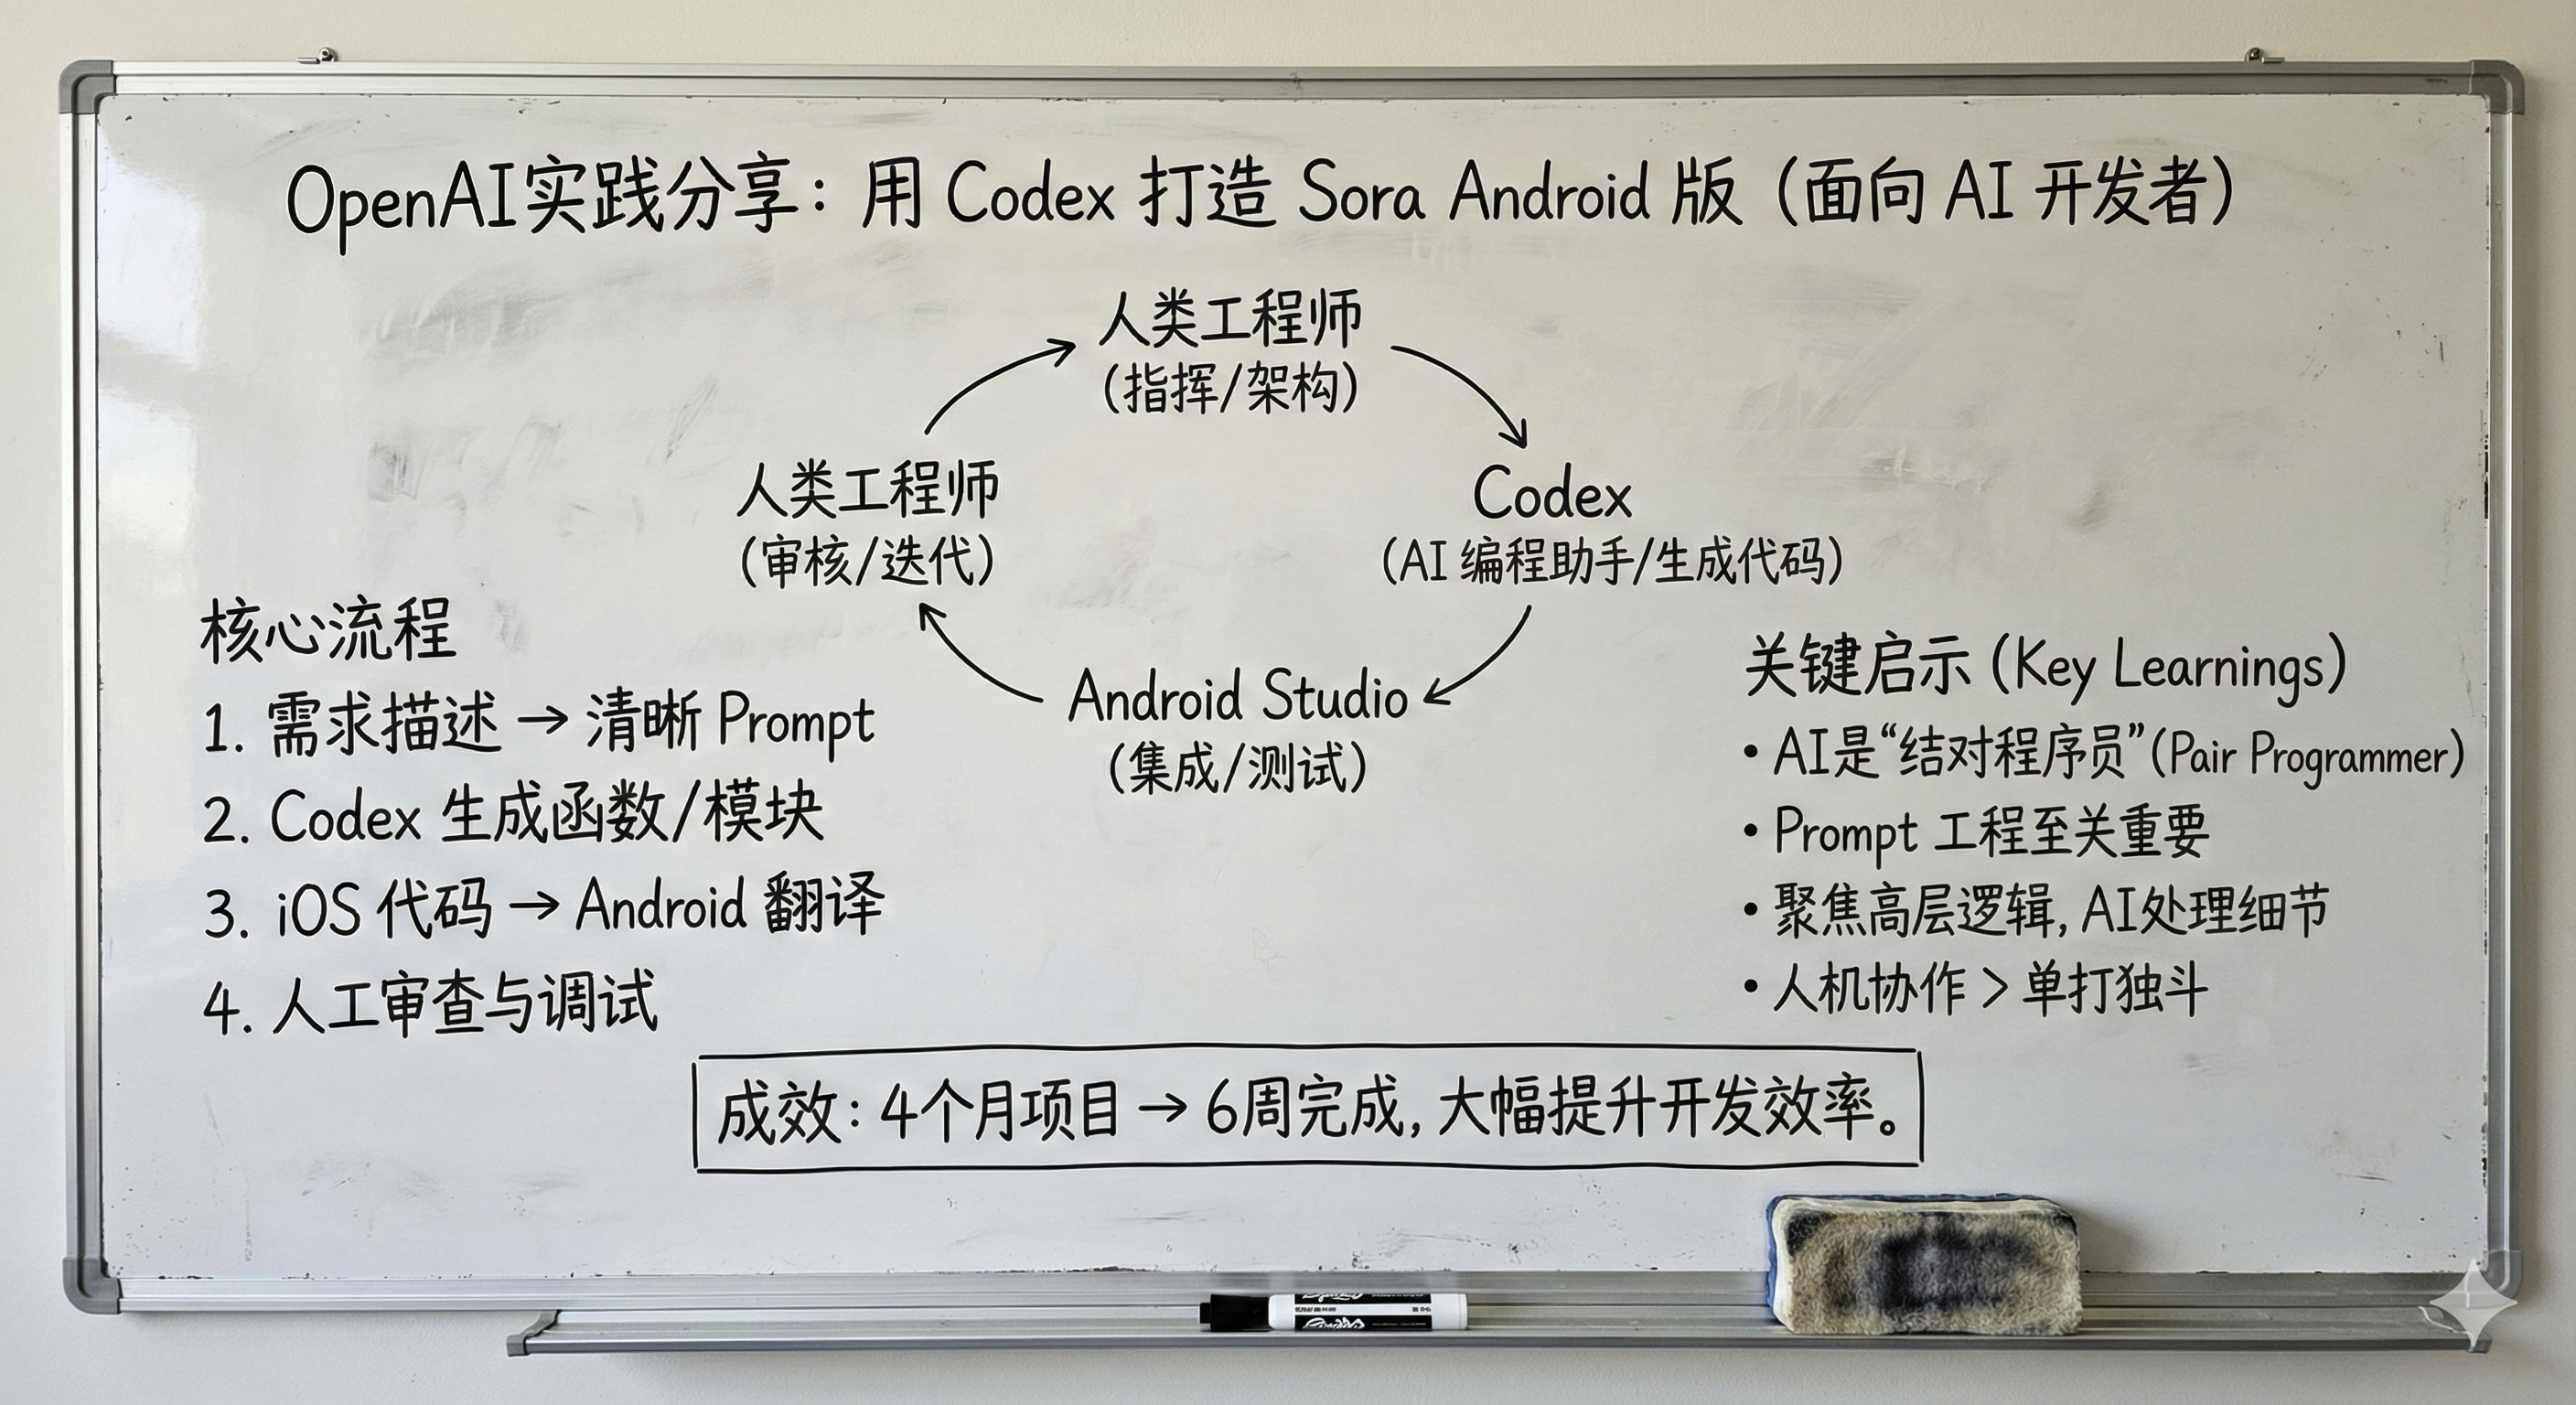 OpenAI实践分享：用 Codex 打造 Sora Android 版（面向 AI 开发者）
人类工程师
(指挥/架构)
人类工程师
(审核/迭代)
Codex
(AI 编程助手/生成代码)
Android Studio
(集成/测试)
核心流程
1. 需求描述 → 清晰 Prompt
2. Codex 生成函数/模块
3. iOS 代码 → Android 翻译
4. 人工审查与调试
关键启示 (Key Learnings)
• AI是“结对程序员”(Pair Programmer)
• Prompt 工程至关重要
• 聚焦高层逻辑, AI处理细节
• 人机协作 > 单打独斗
成效：4个月项目 → 6周完成, 大幅提升开发效率。